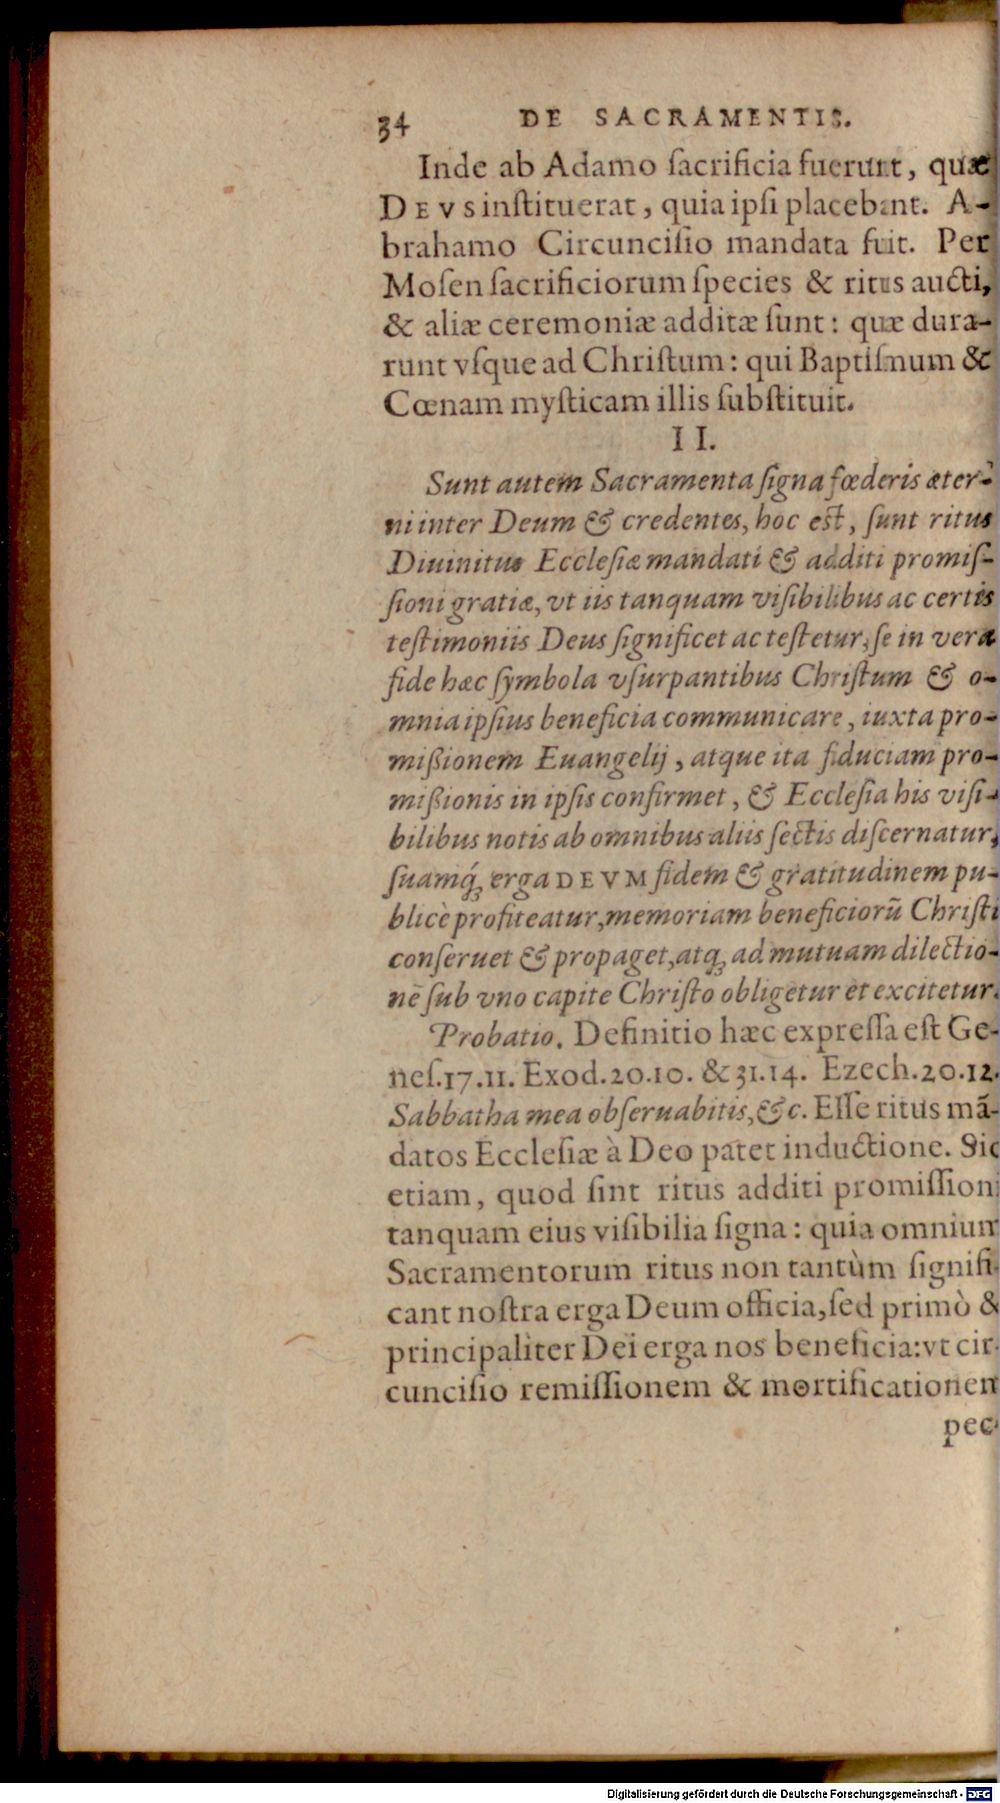 34 DE SACRAMENTIS.
Inde ab Adamo ſacrificia fuerunt, quæ
DEVS inſtituerat, quia ipſi placebant. A-
brahamo Circunciſio mandata fuit. Per
Moſen ſacrificiorum ſpecies & ritus aucti,
& aliæ ceremoniæ additæ ſunt: quæ dura-
runt vſque ad Chriſtum: qui Baptiſmum &
Cœnam myſticam illis ſubſtituit.
II.
Sunt autem Sacramenta ſigna fœderis æter-
ni inter Deum & credentes, hoc eſt, ſunt ritus
Diuinitus Eccleſiæ mandati & additi promiſ-
ſioni gratiæ, vt iis tanquam viſibilibus ac certis
teſtimoniis Deus ſignificet ac teſtetur, ſe in vera
fide hæc ſymbola vſurpantibus Chriſtum & o-
mnia ipſius beneficia communicare, iuxta pro-
mißionem Euangelij, atque ita fiduciam pro-
mißionis in ipſis confirmet, & Eccleſia his viſi-
bilibus notis ab omnibus aliis ſectis diſcernatur,
ſuamq́ꝫ erga DEVM fidem & gratitudinem pu-
blicè profiteatur, memoriam beneficiorū Chriſti
conſeruet & propaget, atqꝫ ad mutuam dilectio-
nē ſub vno capite Chriſto obligetur et excitetur.
Probatio. Definitio hæc expreſſa eſt Ge-
neſ.17.11. Exod.20.10. & 31.14. Ezech.20.12.
Sabbatha mea obſeruabitis, &c. Eſſe ritus mā-
datos Eccleſiæ à Deo patet inductione. Sic
etiam, quod ſint ritus additi promiſſioni
tanquam eius viſibilia ſigna: quia omnium
Sacramentorum ritus non tantùm ſignifi-
cant noſtra erga Deum officia, ſed primò &
principaliter Dei erga nos beneficia: vt cir-
cunciſio remiſſionem & mortificationem
pec-
Digitalisierung gefördert durch die Deutsche Forschungsgemeinschaft - DFG